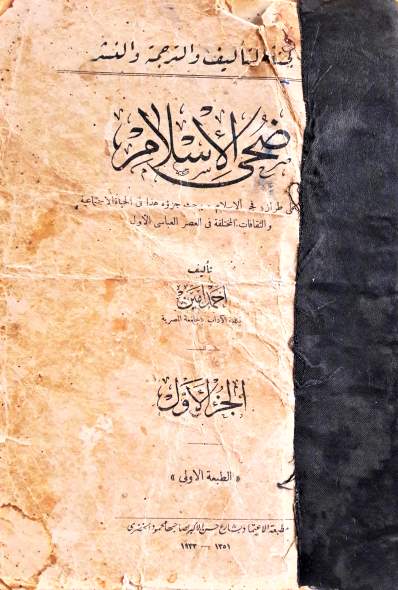 لجنة التأليف والترجمة والنشر
ضحى الإسلام
فجر الاسلام يبحث جزؤه هذا فى الحياة الاجتماعية
والثقافات المختلفة فى العصر العباسى الأول
تأليف
أحمد أمين
بكلية الآداب بالجامعة المصرية
الجزء الأول
« الطبعة الاولى »
مطبعة الاعتماد بشارع حسن الاكبر لصاحبها محمود الخضرى
١٣٥١ — ١٩٣٣